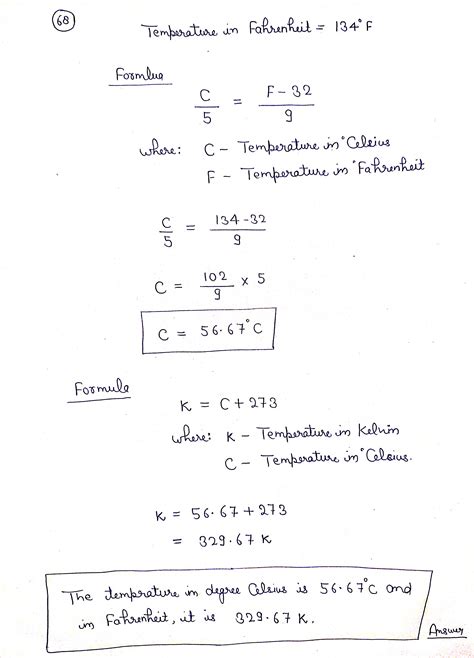 68
Temperature in Fahrenheit = 134°F
Formlua
C/5 = F-32/9
where: C - Temperature in °Celcius
F - Temperature in °Fahrenheit
C/5 = 134-32/9
C = 102/9 × 5
C = 56.67°C
Formula
K = C+273
where: K - Temperature in Kelvin
C - Temperature in °Celcius.
K = 56.67+273
= 329.67 K
The temprature in degree Celsius is 56.67°C and
in Fahrenheit, it is 329.67 K.
Answer